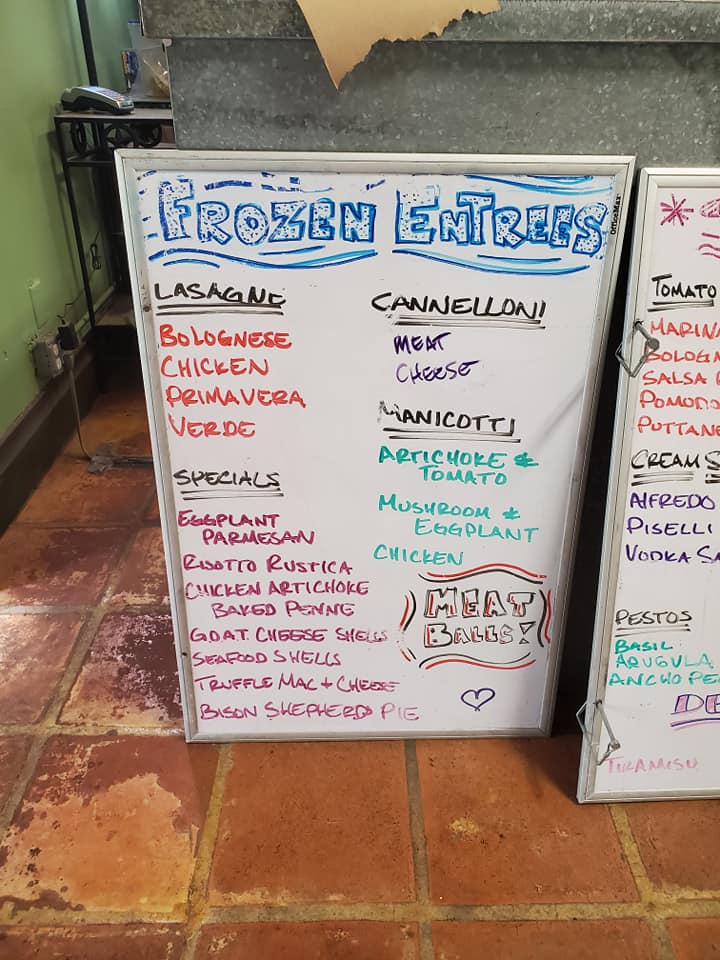 FROZEN ENTREES
LASAGNE
BOLOGNESE
CHICKEN
PRIMAVERA
VERDE
SPECIALS
EGGPLANT
PARMESAN
RISOTTO RUSTICA
CHICKEN ARTICHOKE
BAKED PENNE
GOAT CHEESE SHELLS
SEAFOOD SHELLS
TRUFFLE MAC + CHEESE
BISON SHEPHERDS PIE
CANNELLONI
MEAT
CHEESE
MANICOTTI
ARTICHOKE &
TOMATO
MUSHROOM &
EGGPLANT
CHICKEN
MEAT
BALLS!
TOMATO
MARINA
BOLOGN
SALSA
POMODO
PUTTANE
CREAM S
ALFREDO
PISELLI
VODKA SA
PESTOS
BASIL
ARUGULA
ANCHO PE
DE
TIRAMISU